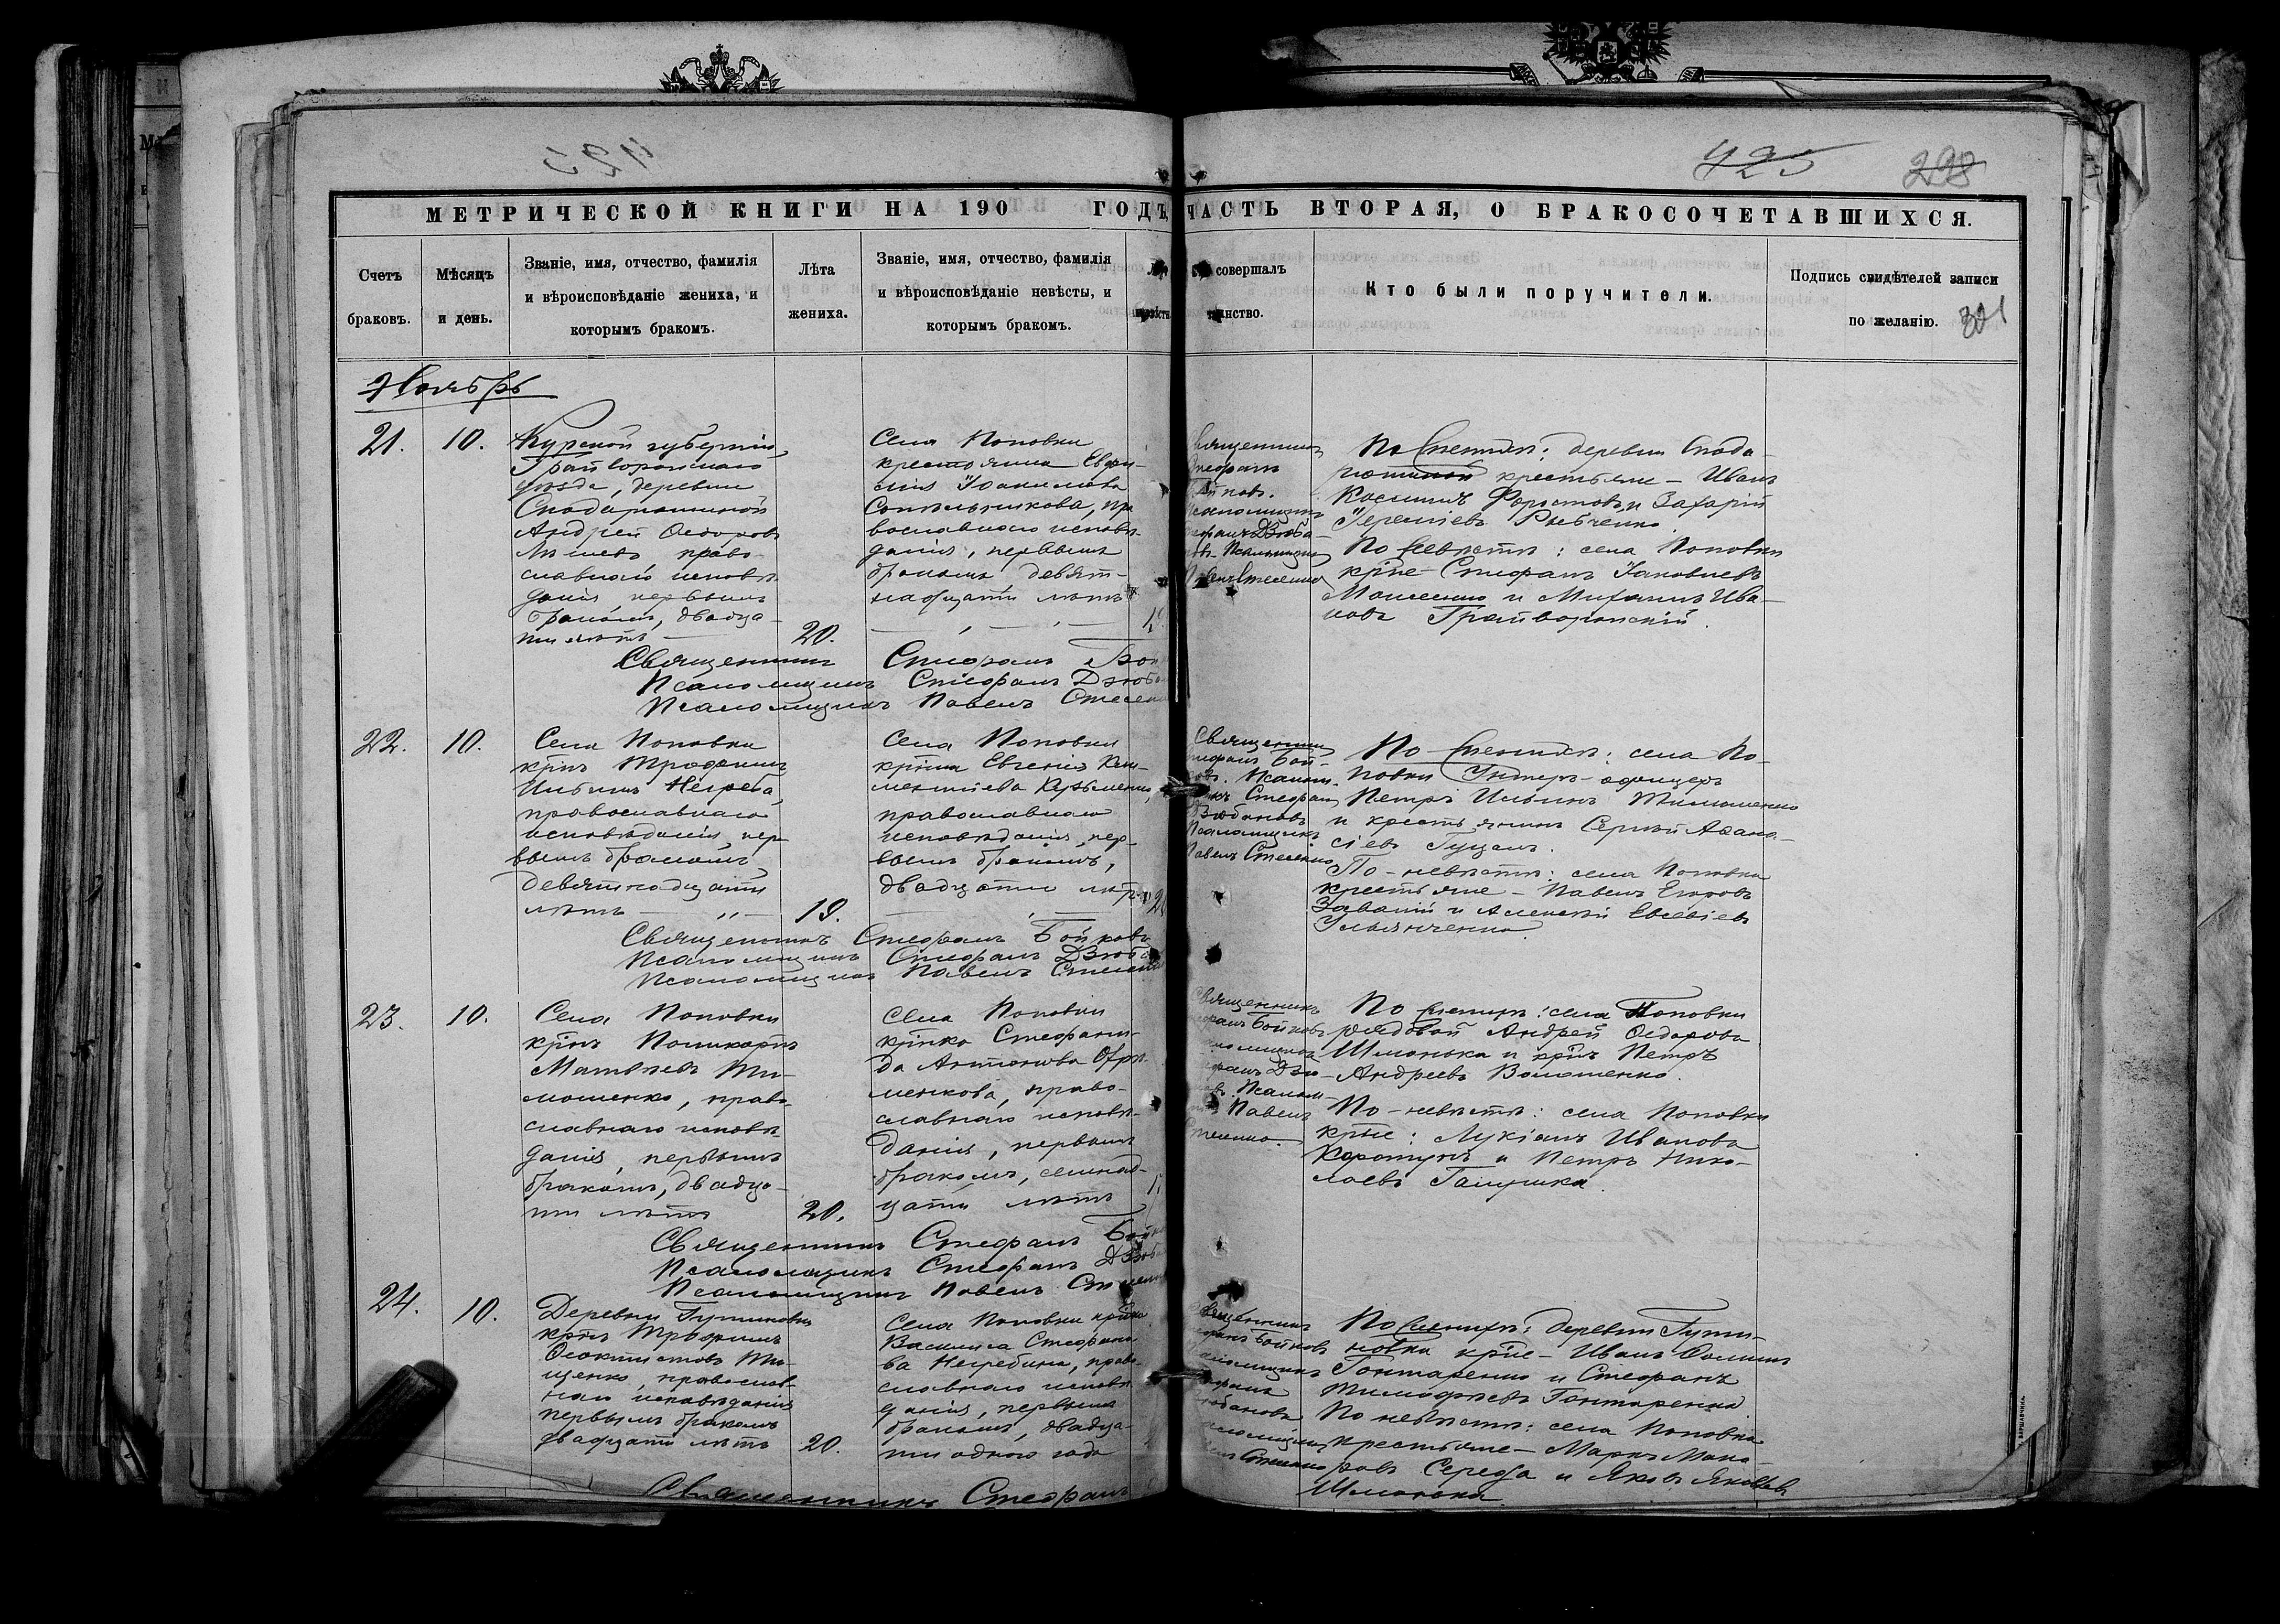 425
298
МЕТРИЧЕСКОЙ КНИГИ НА 190 ГОДЪ, ЧАСТЬ ВТОРАЯ, О БРАКОСОЧЕТАВШИХСЯ.
Счетъ браковъ.
Мѣсяцъ и день.
Званіе, имя, отчество, фамилія
и вѣроисповѣданіе жениха, и
которымъ бракомъ.
Лѣта жениха.
Званіе, имя, отчество, фамилія
и вѣроисповѣданіе невѣсты, и
которымъ бракомъ.
совершалъ
таинство.
Кто были поручители.
Подпись свидѣтелей записи
по желанію.
321
Ноябрь
21.
10.
Курской губерніи,
Грайворонскаго
уѣзда, деревни
Андрей Ѳедоровъ
право-
славнаго исповѣ-
данія, первымъ
бракомъ, двадца-
ти лѣтъ
20.
Села Поповки
крестьянка Евфи-
мія
пра
вославнаго исповѣ-
данія, первымъ
бракомъ, девят-
надцати лѣтъ
Священникъ
Стефанъ
Бойковъ.
Псаломщикъ
Стефанъ Дзюба-
новъ. Псаломщикъ
Павелъ Стесенко
По женихѣ: деревни
крестьяне - Иванъ
Косминъ и Захарій
Рыбченко.
По невѣстѣ: села Поповки
кр-не Стефанъ Іаковлевъ
Моисеенко и Михаилъ Ива-
новъ Грайворонскій.
Священникъ Стефанъ Бой
Псаломщикъ Стефанъ Дзюба
Псаломщикъ Павелъ Стесен
22.
10.
Села Поповки
кр-нъ Трофимъ
Ильинъ Негреба,
православнаго
исповѣданія, пер
вымъ бракомъ,
девятнадцати
лѣтъ — „ —
19.
Села Поповки
кр-нка Евгенія Кли-
ментіева Кузьменко,
православнаго
исповѣданія, пер-
вымъ бракомъ,
двадцати лѣтъ
Священникъ
Стефанъ Бой-
ковъ. Псалом-
щикъ Стефанъ
Дзюбановъ
Псаломщикъ
Павелъ Стесенко
По женихѣ: села По-
повки Унтеръ-офицеръ
Петръ Ильинъ Тимошенко
и крестьянинъ Сергѣй Аѳана-
сіевъ Гуцалъ.
По невѣстѣ: села Поповки
крестьяне - Павелъ Егоровъ
и Алексѣй Евсевіевъ
Ульянченко.
Священникъ Стефанъ Бойковъ
Псаломщикъ Стефанъ Дзюба
Псаломщикъ Павелъ Стесенко
23.
10.
Села Поповки
кр-нъ Поликарпъ
Матвѣевъ Ти-
мошенко, право-
славнаго исповѣ-
данія, первымъ
бракомъ, двадца-
ти лѣтъ
20.
Села Поповки
кр-нка Стефани-
да Антонова Ефи-
менкова, право-
славнаго исповѣ-
данія, первымъ
бракомъ, семнад-
цати лѣтъ
Священникъ
Стефанъ Бойковъ
Псаломщикъ
Стефанъ Дзю-
Псалом-
Павелъ
Стесенко.
По женихѣ: села Поповки
рядовой Андрей Ѳедоровъ
Шмонька и кр-нъ Петръ
Андреевъ Волошенко.
По невѣстѣ: села Поповки
кр-не: Лукіанъ Ивановъ
Коротунъ и Петръ Нико-
лаевъ Галушка.
Священникъ Стефанъ Бойк
Псаломщикъ Стефанъ Дзюба
Псаломщикъ Павелъ Стесен
24.
10.
Деревни
кр-нъ Трофимъ
Ѳеоктистовъ Ти-
щенко, православ-
наго исповѣданія
первымъ бракомъ
двадцати лѣтъ
20.
Села Поповки кр-нка
Василиса Стефано-
ва Негребина, право-
славнаго исповѣ-
данія, первымъ
бракомъ, двадца-
ти одного года
Священникъ
Стефанъ Бойковъ
Псаломщикъ
По женихѣ: деревни
кр-не - Иванъ Ѳоминъ
Гонтаренко и Стефанъ
Тимофѣевъ Гонтаренко
По невѣстѣ: села Поповки
крестьяне - Маркъ Мака-
ровъ Середа и Яковъ Яковлевъ
Шмонька.
Священникъ Стефанъ